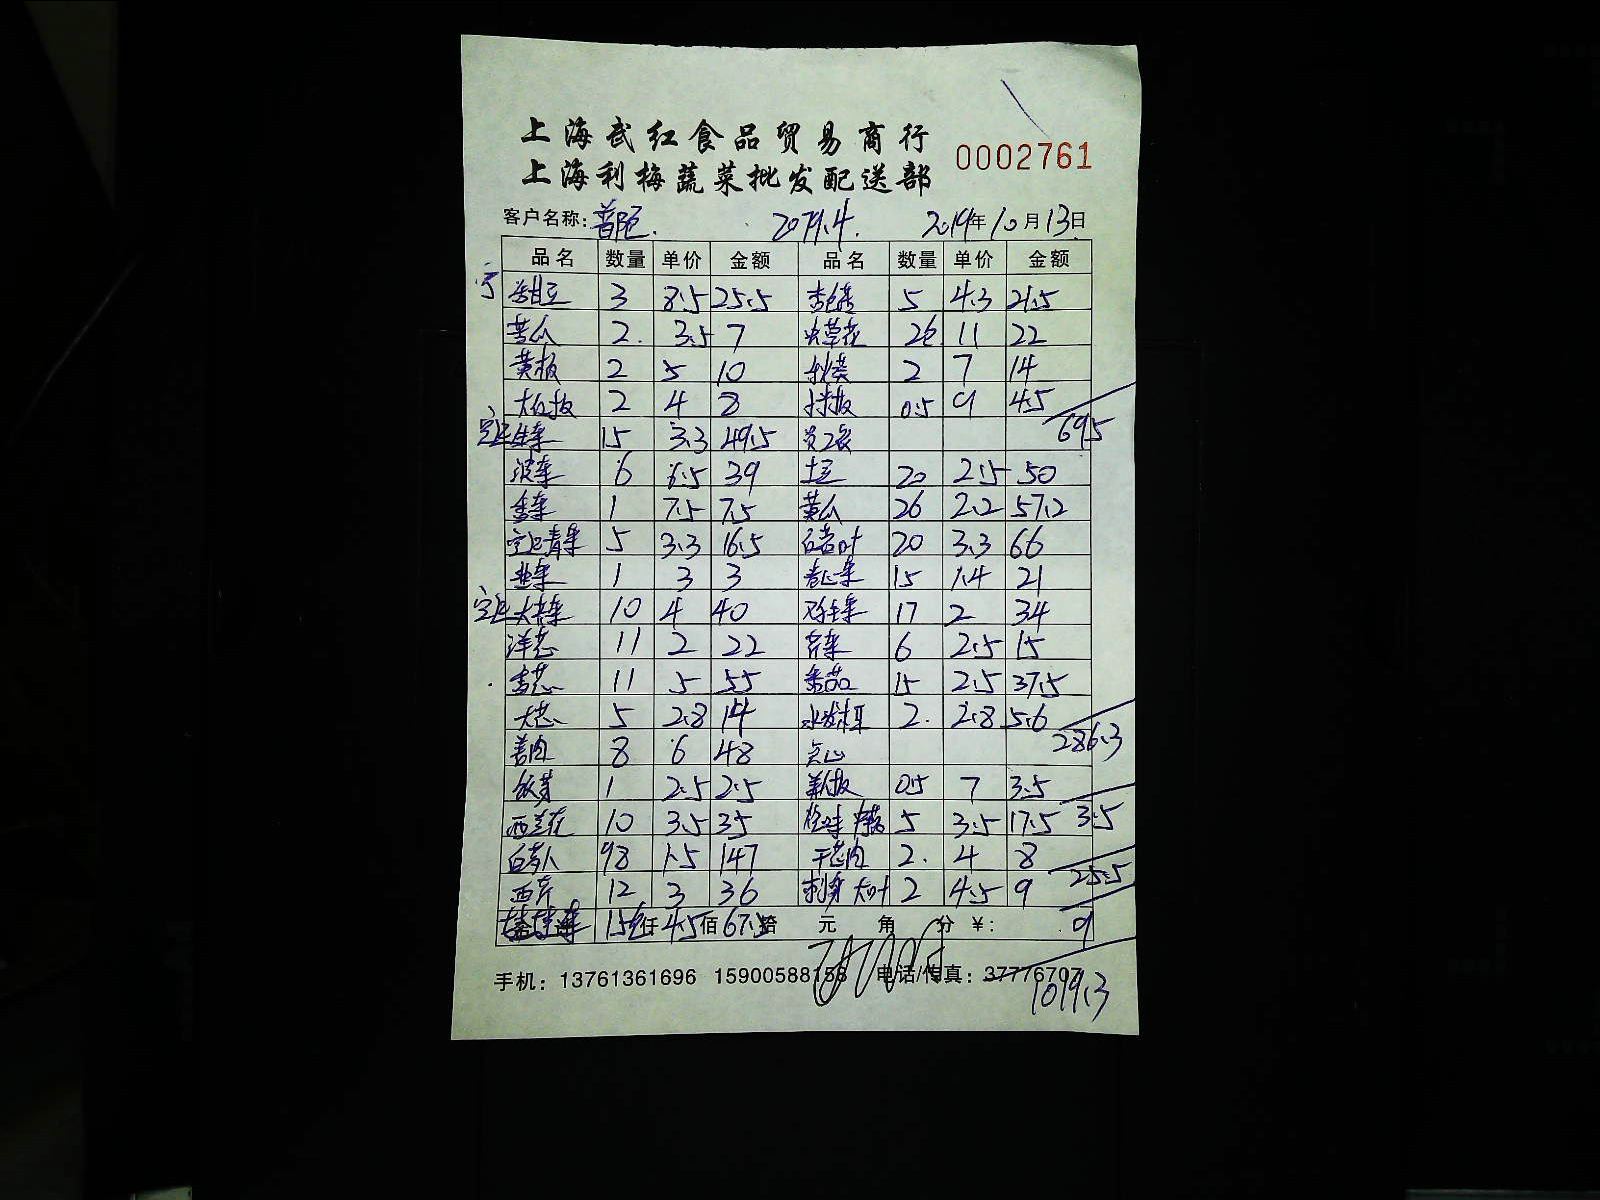 上海武红食品贸易商行
上海利梅蔬菜批发配送部 0002761
客户名称: 普陀. 2079.4. 2019年10月13日
品名 数量 单价 金额 品名 数量 单价 金额
3 8.5 25.5 杏包菇 5 4.3 21.5
苦瓜 2. 3.5 7 虫草花 2包 11 22
黄板 2 5 10 秋葵 2 7 14
大红板 2 4 8 0.5 9 4.5
69.5
生菜 15 3.3 49.5 员工餐
菠菜 6 6.5 39 土豆 20 2.5 50
香菜 1 7.5 7.5 黄瓜 26 2.2 57.2
青菜 5 3.3 16.5 20 3.3 66
韭菜 1 3 3 卷心菜 15 1.4 21
10 4 40 17 2 34
洋葱 11 2 22 芹菜 6 2.5 15
香葱 11 5 55 番茄 15 2.5 37.5
大葱 5 2.8 14 2. 2.8 5.6
286.3
姜肉 8 6 48 点心
1 2.5 2.5 0.5 7 3.5
3.5
西兰花 10 3.5 35 5 3.5 17.5
白萝卜 98 1.5 147 干葱肉 2. 4 8
25.5
西芹 12 3 36 刺身 大叶 2 4.5 9
15包 仟 4.5 佰 67.5 拾 元 角 分 ¥: 9
手机: 13761361696 15900588158 电话/传真: 37776707
1019.3